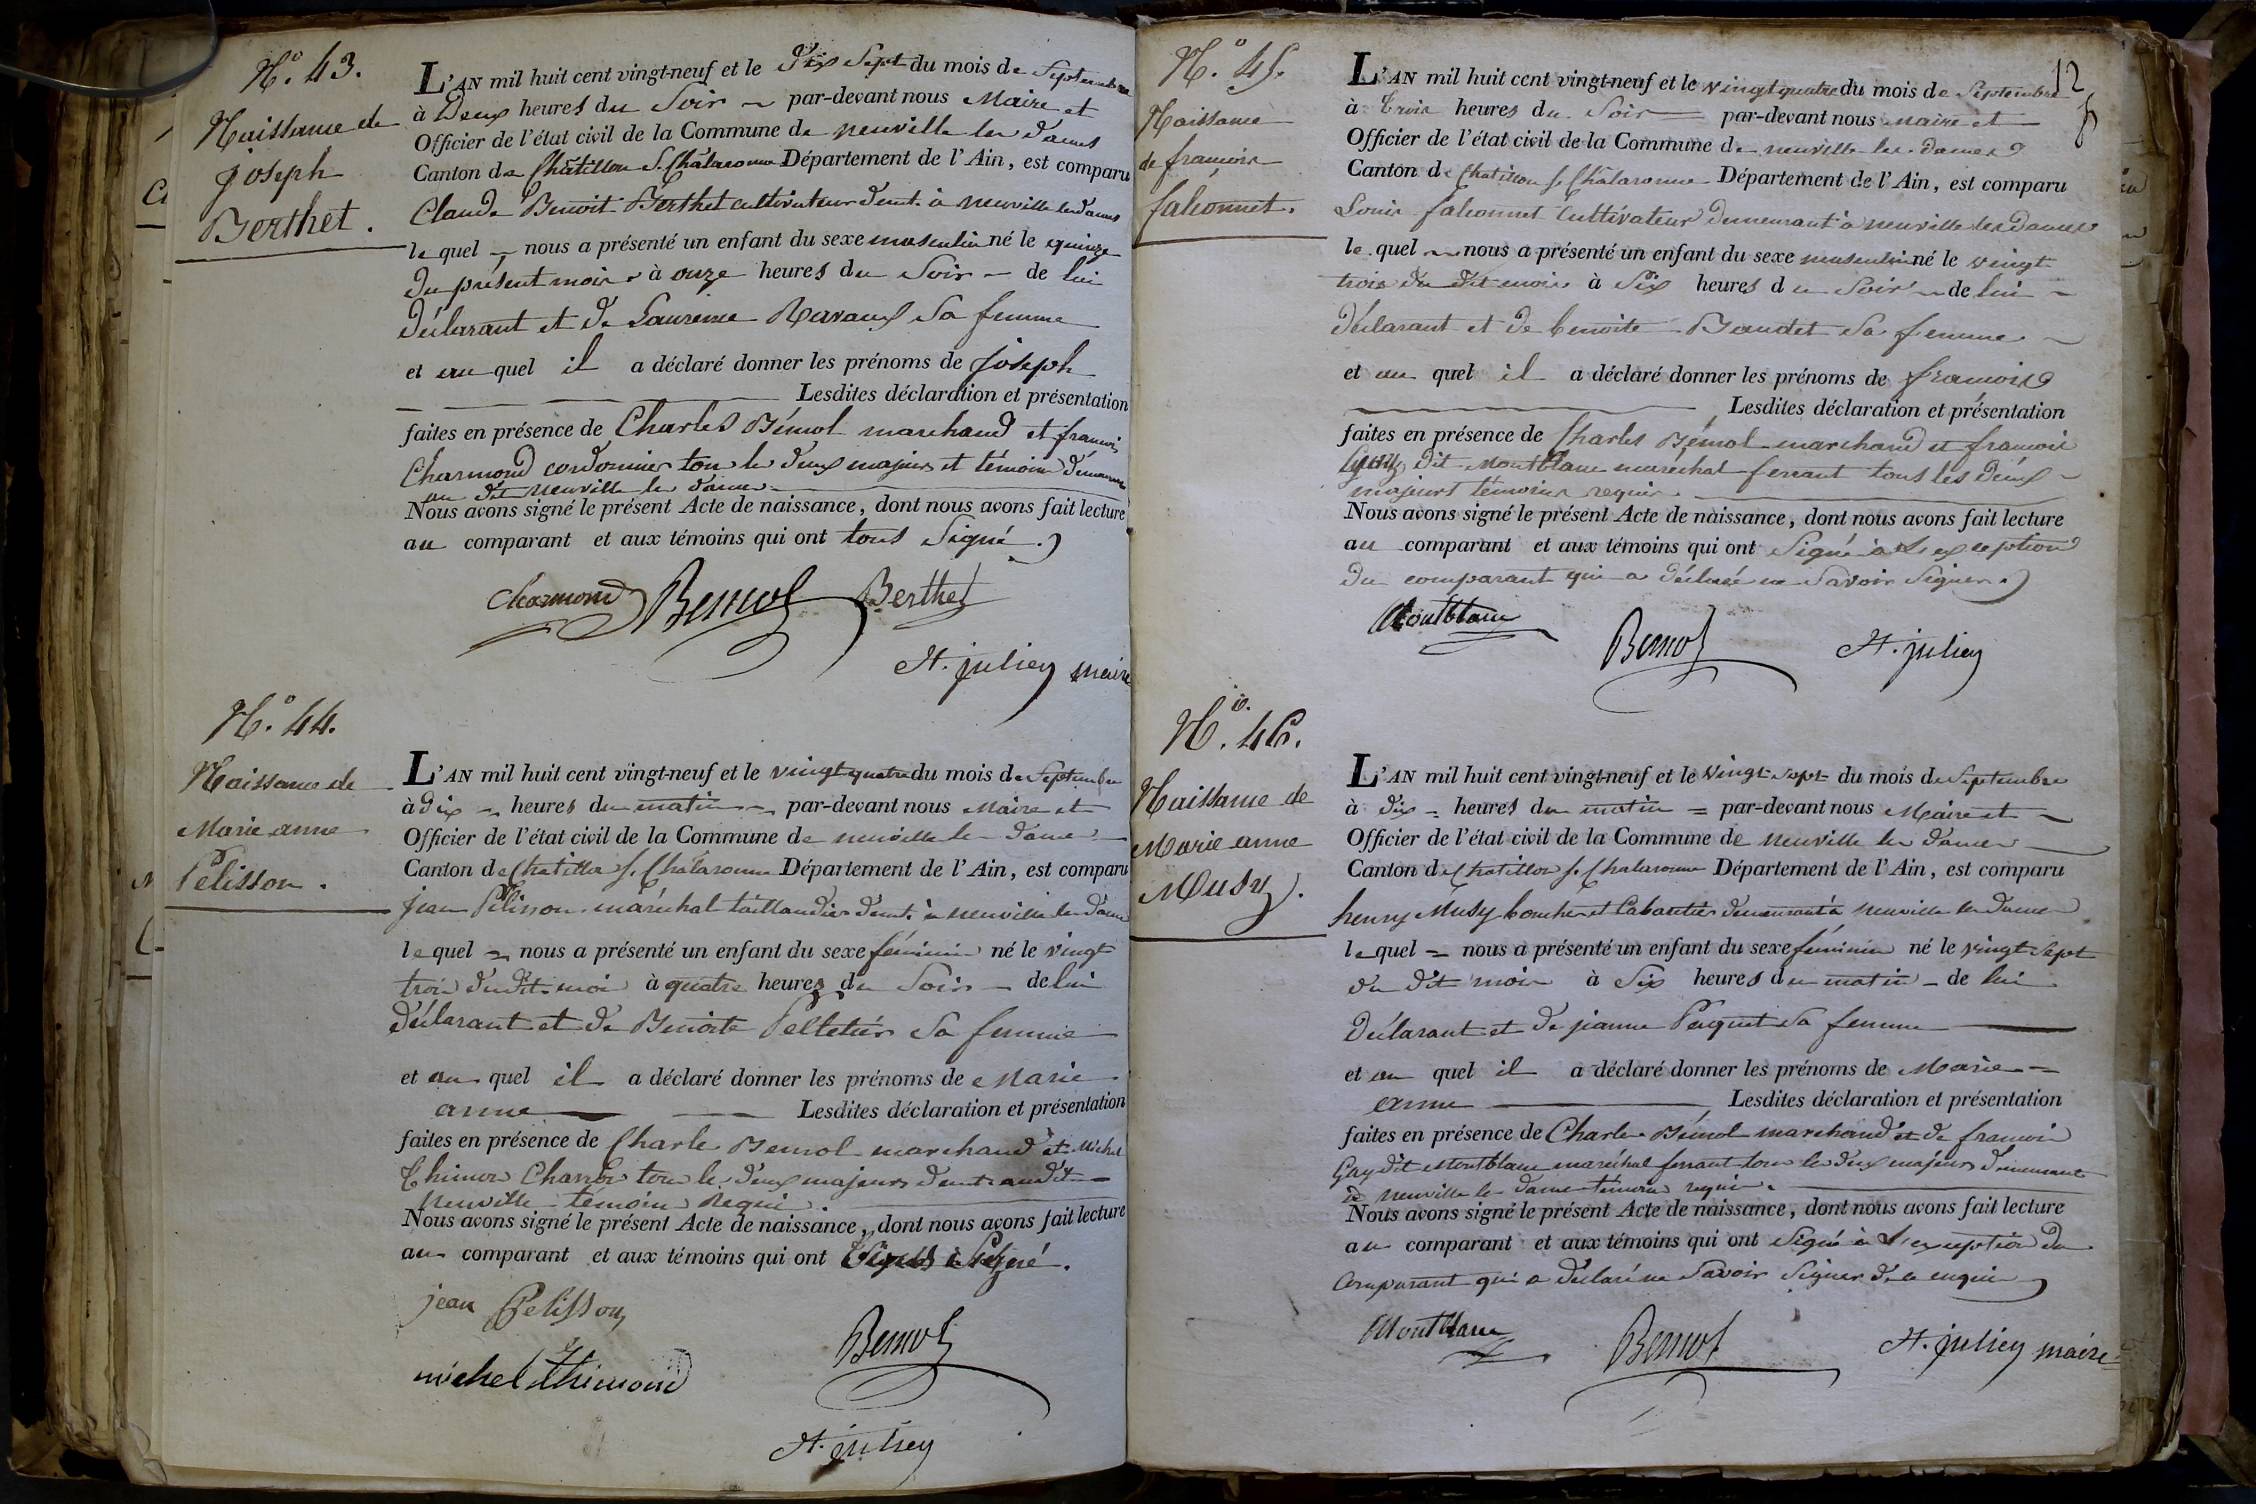 N.° 43.
Naissance de
joseph
Berthet.
L'AN mil huit cent vingt-neuf et le Dix Sept du mois de Septembre
à Deux heures du Soir par-devant nous Maire et
Officier de l'état civil de la Commune de neuville les dames
Canton de Châtillon S. Châlaronne Département de l'Ain, est comparu
Claude Benoit Berthet cultivateur demt. à neuville les dames
le quel nous a présenté un enfant du sexe masculin né le quinze
du présent mois à onze heures du Soir de lui
déclarant et de Laurence Ravaux Sa femme
et au quel il a déclaré donner les prénoms de joseph
Lesdites déclaration et présentation
faites en présence de Charles Bémol marchand et francois
Charmond cordonnier tou les deux majeurs et témoins demeurant
au dit neuville les dames
Nous avons signé le présent Acte de naissance, dont nous avons fait lecture
au comparant et aux témoins qui ont tous Signé.
Charmond Bemol Berthet
St. julien maire
N.° 44.
Naissance de
Marie anne
Pelisson.
L'AN mil huit cent vingt-neuf et le vingt quatre du mois de Septembre
à dix heures du matin par-devant nous Maire et
Officier de l'état civil de la Commune de neuville les dames
Canton de Chatillon S. Chalaronne Département de l'Ain, est comparu
jean Pélisson maréchal taillandier demt. à neuville les dames
le quel nous a présenté un enfant du sexe féminin né le vingt
trois dudit moi à quatre heures du Soir de lui
déclarant et de Benoite Pelletier Sa femme
et au quel il a déclaré donner les prénoms de Marie
anne Lesdites déclaration et présentation
faites en présence de Charle Bemol marchand et Michel
Thimon Charron tou les deux majeurs demt. audit
neuville témoins Requi.
Nous avons signé le présent Acte de naissance, dont nous avons fait lecture
au comparant et aux témoins qui ont Signé.
jean Pelisson
Bemol
michel thimond
St. julien
12
N.° 45.
Naissance
de françois
falconnet.
L'AN mil huit cent vingt-neuf et le vingt quatre du mois de Septembre
à Trois heures du Soir par-devant nous maire et
Officier de l'état civil de la Commune de neuville les dames
Canton de Chatillon S. Châlaronne Département de l'Ain, est comparu
Louis falconnet Cultivateur demeurant à neuville les dames
le quel nous a présenté un enfant du sexe masculin né le vingt
trois du dit mois à Six heures du Soir de lui
déclarant et de benoite Baudet Sa femme
et au quel il a déclaré donner les prénoms de françois
Lesdites déclaration et présentation
faites en présence de Charles Bémol marchand et francois
dit Montblanc marechal ferrant tous les deux
majeurs témoins requis.
Nous avons signé le présent Acte de naissance, dont nous avons fait lecture
au comparant et aux témoins qui ont Signé à L'exception
du comparant qui a déclaré ne Savoir Signer.
Montblanc
Bemol
St. julien
N.° 46.
Naissance de
Marie anne
Musy.
L'AN mil huit cent vingt-neuf et le Vingt Sept du mois de Septembre
à dix heures du matin par-devant nous Maire et
Officier de l'état civil de la Commune de neuville les dames
Canton de Chatillon S. Chalaronne Département de l'Ain, est comparu
henry Musy boucher et Cabartier demeurant à neuville les dames
le quel nous a présenté un enfant du sexe féminin né le vingt Sept
du dit mois à Six heures du matin de lui
déclarant et de jeanne Paquet Sa femme
et au quel il a déclaré donner les prénoms de Marie
anne Lesdites déclaration et présentation
faites en présence de Charle Bémol marchand et de francois
Gay dit Montblanc maréchal ferrant tou les deux majeurs demeurant
à neuville les dame témoins requi.
Nous avons signé le présent Acte de naissance, dont nous avons fait lecture
au comparant et aux témoins qui ont Signé à L'exception du
Comparant qui a déclaré ne Savoir Signer de enquis
Montblanc
Bemol
St. julien maire